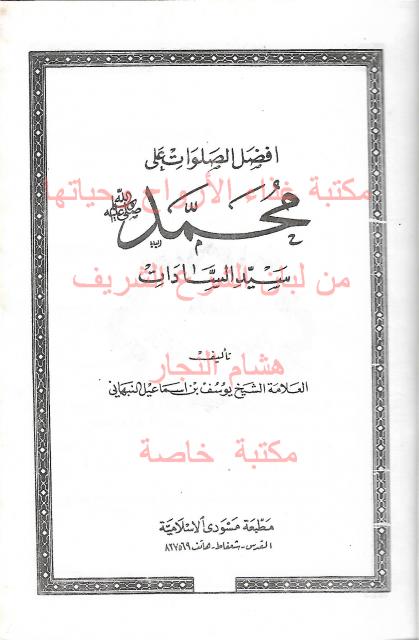 افضل الصلوات على
مكتبة غذاء الأرواح وحياتها
محمد ﷺ
من لبان الشرع الشريف
سيد السادات
تأليف
هشام النجار
العلامة الشيخ يوسف بن اسماعيل النبهاني
مكتبة خاصة
مطبعة مسودي الاسلامية
القدس - شعفاط - هاتف ٨٢٧٥٦٩